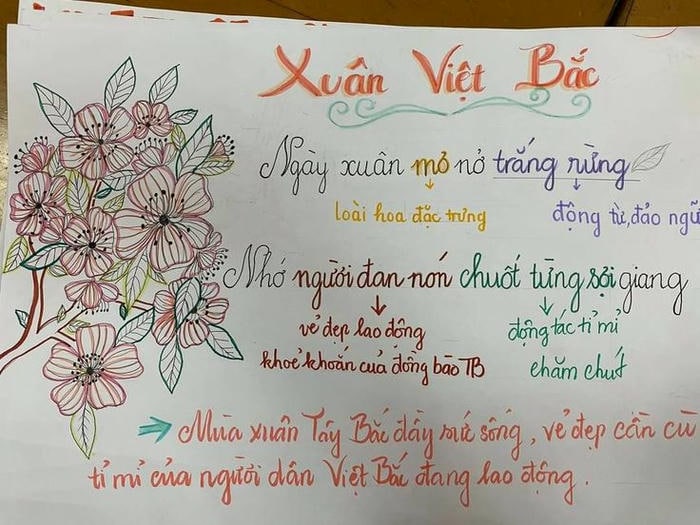 Xuân Việt Bắc
Ngày xuân mơ nở trắng rừng
loài hoa đặc trưng
động từ, đảo ngữ
Nhớ người đan nón chuốt từng sợi giang
vẻ đẹp lao động
khoẻ khoắn của đồng bào TB
động tác tỉ mỉ
chăm chút
Mùa xuân Tây Bắc đầy sức sống, vẻ đẹp cần cù
tỉ mỉ của người dân Việt Bắc đang lao động.